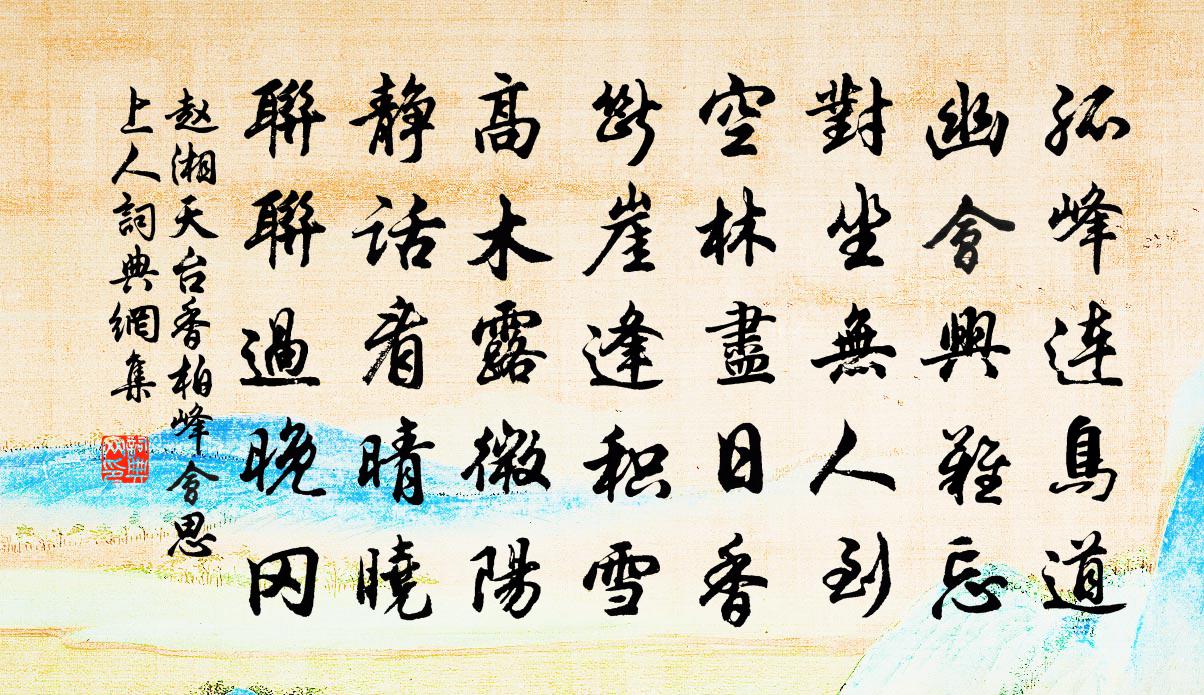 孤峰连鳥道
幽會興難忘
對坐無人到
空林盡日香
斷崖逢积雪
高木露微陽
静话看晴曉
聯聯過晚冈
赵湘天台香柏峰會思
上人詞典網集
詞典网印